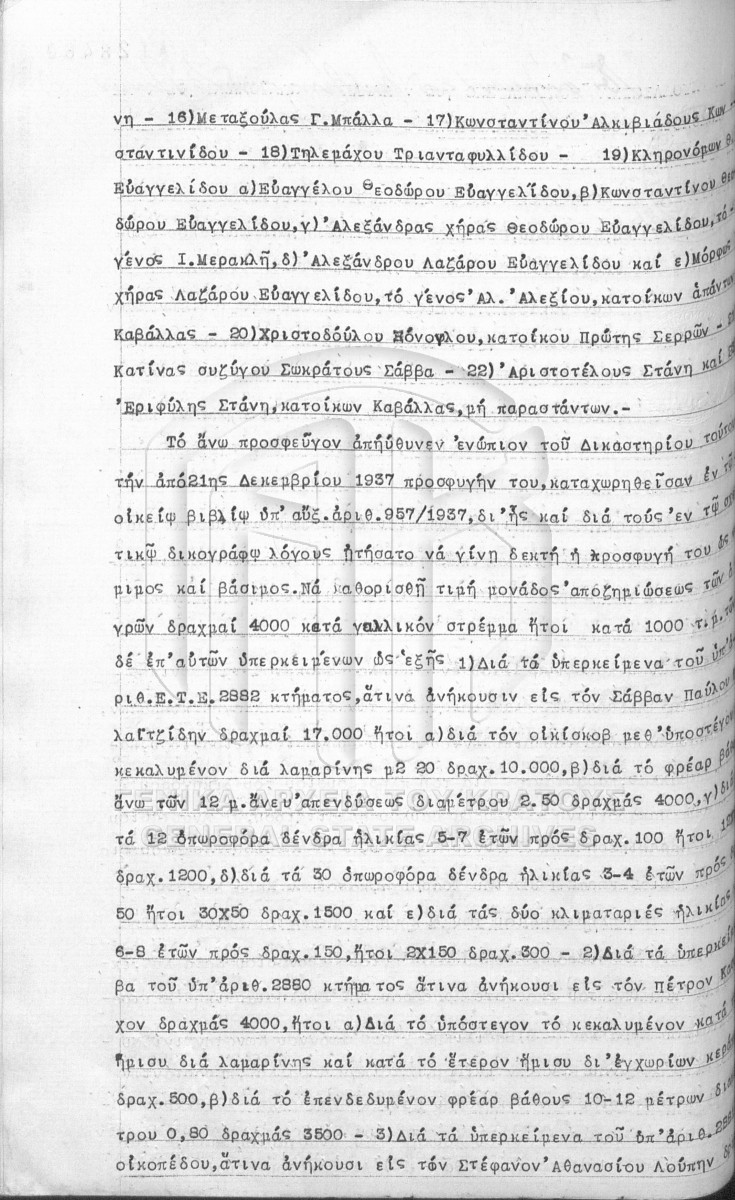 νη - 16)Μεταξούλας Γ.Μπάλλα - 17)Κωνσταντίνου 'Αλκιβιάδους Κων
σταντινίδου - 18)Τηλεμάχου Τριανταφυλλίδου - 19)Κληρονόμων Θ
Εὐαγγελίδου α)Εὐαγγέλου Θεοδώρου Εὐαγγελίδου,β)Κωνσταντίνου Θεο
δώρου Εὐαγγελίδου,γ)'Αλεξάνδρας χήρας Θεοδώρου Εὐαγγελίδου,τό -
γένος Ι.Μερακλῆ,δ)'Αλεξάνδρου Λαζάρου Εὐαγγελίδου καί ε)Μόρφως
χήρας Λαζάρου Εὐαγγελίδου,τό γένος 'Αλ.'Αλεξίου,κατοίκων ἁπάντων
Καβάλλας - 20)Χριστοδούλου ,κατοίκου Πρώτης Σερρῶν -
Κατίνας συζύγου Σωκράτους Σάββα - 22)'Αριστοτέλους Στάνη καί
'Εριφύλης Στάνη,κατοίκων Καβάλλας,μή παραστάντων.-
Τό ἄνω προσφεῦγον ἀπηύθυνεν 'ενώπιον τοῦ Δικαστηρίου τούτου
τήν ἀπό21ης Δεκεμβρίου 1937 προσφυγήν του,καταχωρηθεῖσαν ἐν τῷ
οἰκείῳ βιβλίῳ ὑπ' αὔξ.ἀριθ.957/1937,δι'ἧς καί διά τούς 'εν τῷ σχε
τικῷ δικογράφῳ λόγους ᾐτήσατο νά γίνῃ δεκτή ἡ προσφυγή του ὡς
μιμος καί βάσιμος.Νά καθορισθῇ τιμή μονάδος 'αποζημιώσεως τῶν ἀ
γρῶν δραχμαί 4000 κατά γαλλικόν στρέμμα ἤτοι κατά 1000 τ.μ.τῶν
δέ ἐπ'αὐτῶν ὑπερκειμένων ὡς 'εξῆς 1)Διά τά ὑπερκείμενα τοῦ ὑπ'ἀ
ριθ.Ε.Τ.Ε.2882 κτήματος,ἅτινα ἀνήκουσιν εἰς τόν Σάββαν Παύλου
λαϊτζίδην δραχμαί 17.000 ἤτοι α)διά τόν οἰκίσκοβ μεθ'ὑποστέγου
κεκαλυμένον διά λαμαρίνης μ2 20 δραχ.10.000,β)διά τό φρέαρ
ἄνω τῶν 12 μ.ἄνευ'απενδύσεως διαμέτρου 2.50 δραχμάς 4000,γ)διά
τά 12 ὀπωροφόρα δένδρα ἡλικίας 5-7 ἐτῶν πρός δραχ.100 ἤτοι
δραχ.1200,δ)διά τά 30 ὀπωροφόρα δένδρα ἡλικίας 3-4 ἐτῶν πρός
50 ἤτοι 30Χ50 δραχ.1500 καί ε)διά τάς δύο κλιματαριές ἡλικίας
6-8 ἐτῶν πρός δραχ.150,ἤτοι 2Χ150 δραχ.300 - 2)Διά τά ὑπερκείμε
βα τοῦ ὑπ'ἀριθ.2880 κτήματος ἅτινα ἀνήκουσι εἰς τόν Πέτρον
χον δραχμάς 4000,ἤτοι α)Διά τό ὑπόστεγον τό κεκαλυμένον κατά
ἥμισυ διά λαμαρίνης καί κατά τό ἕτερον ἥμισυ δι'ἐγχωρίων κερά
δραχ.500,β)διά τό ἐπενδεδυμένον φρέαρ βάθους 10-12 μέτρων διαμ
τρου 0,80 δραχμάς 3500 - 3)Διά τά ὑπερκείμενα τοῦ ὑπ'ἀριθ.
οἰκοπέδου,ἅτινα ἀνήκουσι εἰς τόν Στέφανον'Αθανασίου Λούπην
ΓΕΝΙΚΑ ΑΡΧΕΙΑ ΤΟΥ ΚΡΑΤΟΥΣ
GENERAL STATE ARCHIVES